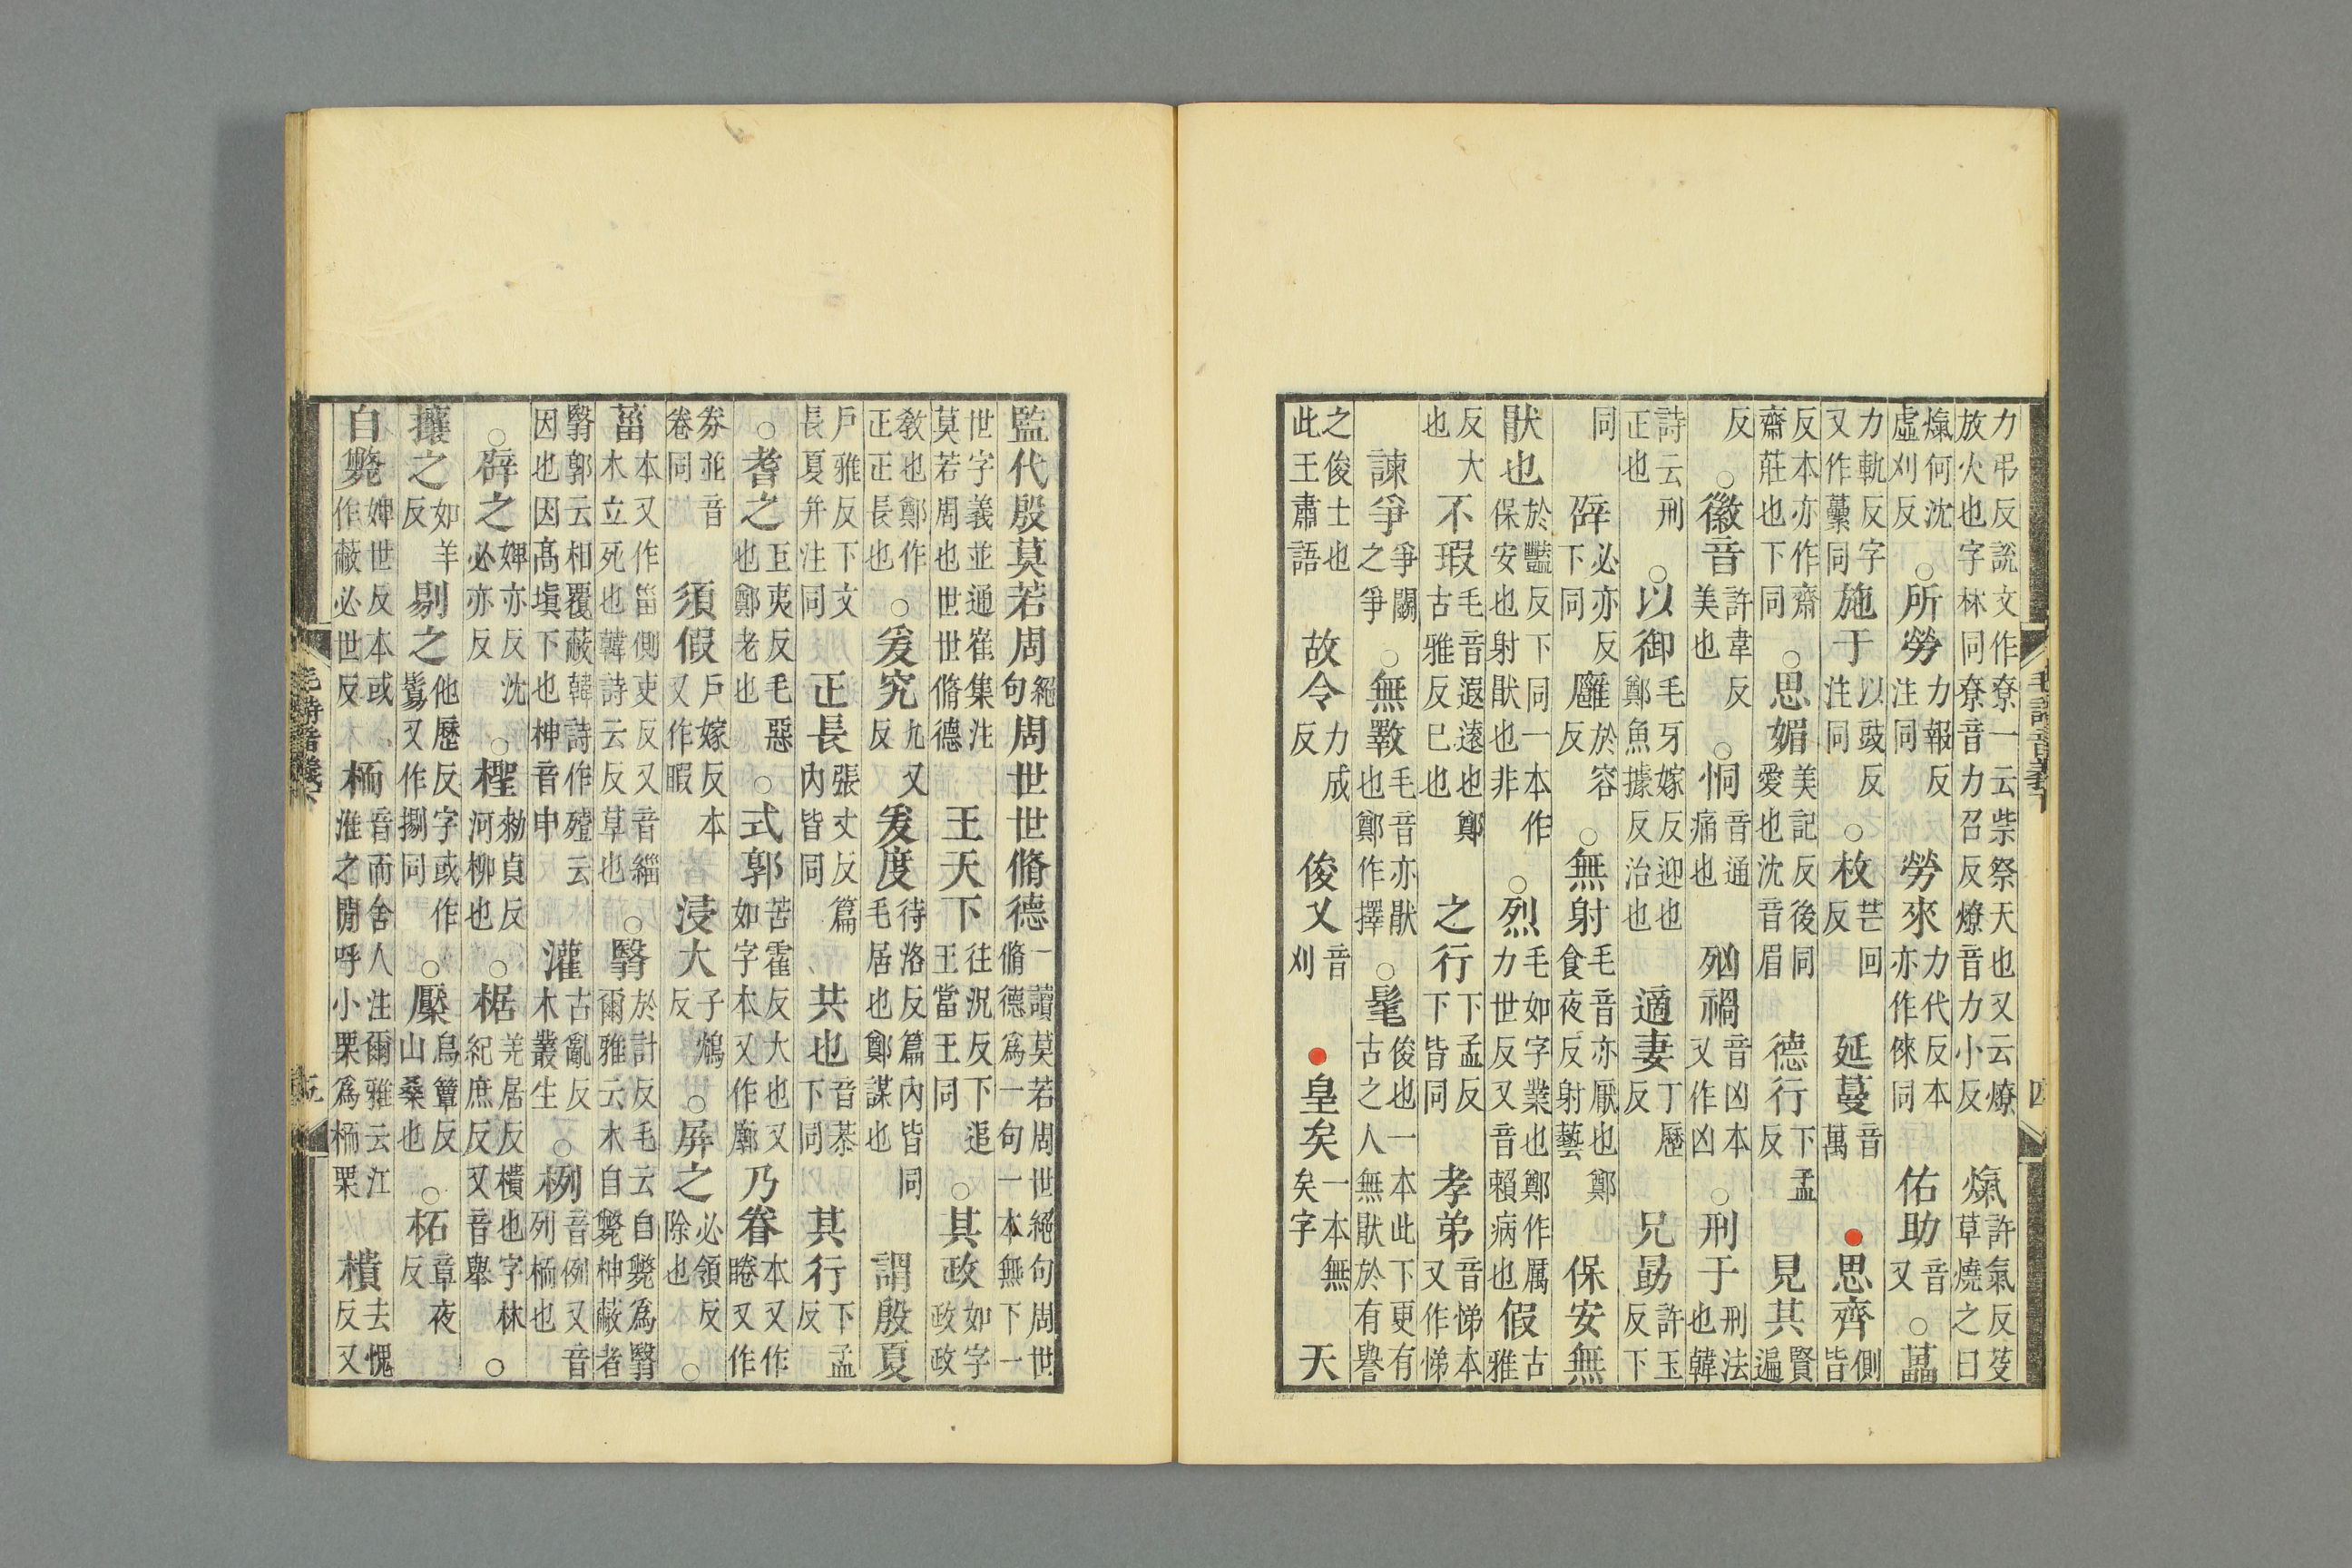 力弔反說文作尞一云祡祭天也又云燎放火也字林同尞音力召反燎音力小反熂許氣反芟草燒之曰
熂何沈虛刈反○所勞力報反注同勞來力代反本亦作倈同佑助音又○藟
力軌反字又作虆同施于以豉反注同○枚芒回反延蔓音萬●思齊側皆
反本亦作齋齋莊也下同○思媚美記反後同愛也沈音眉德行下孟反見其賢遍
反○徽音許韋反美也○恫音通痛也禍音凶本又作凶○刑于刑法也韓
詩云刑正也○以御毛牙嫁反迎也鄭魚據反治也適妻丁歷反兄勖許玉反下
同辟必亦反下同廱於容反○無射毛音亦厭也鄭食夜反射藝保安無
猒也於豔反下同一本作保安也射猒也非○烈毛如字業也鄭作厲力世反又音賴病也假古雅
反大也不瑕毛音遐遠也鄭古雅反已也之行下孟反下皆同孝弟音悌本又作悌
諫爭爭鬭之爭○無斁毛音亦猒也鄭作擇○髦俊也一本此下更有古之人無猒於有譽
之俊士也此王肅語故令力成反俊乂音刈●皇矣一本無矣字天
監代殷莫若周絕句周世世脩德一讀莫若周世絕句周世脩德爲一句一本無下一
世字義並通崔集注莫若周也世世脩德王天下往況反下追王當王同○其政如字政政
教也鄭作正正長也○爰究九又反爰度待洛反篇內皆同毛居也鄭謀也謂殷夏
戶雅反下文長夏并注同正長張丈反篇內皆同共也音恭下同其行下孟反
○耆之巨夷反毛惡也鄭老也○式郭苦霍反大也又如字本又作廓乃眷本又作睠又作
並音卷同須假戶嫁反本又作暇浸大子鴆反○屏之必領反除也○
菑本又作甾側吏反又音緇木立死也韓詩云反草也○翳於計反毛云自斃爲翳爾雅云木自斃柛蔽者
翳郭云相覆蔽韓詩作殪云因也因高塡下也柛音申灌古亂反木叢生○栵音例又音列栭也
○辟之婢亦反沈必亦反○檉勑貞反河柳也○椐羌居反樻也字林紀庶反又音舉○
攘之如羊反剔之他歷反字或作鬄又作捌同○檿烏簟反山桑也○柘章夜反
自斃婢世反本或作蔽必世反栭音而舍人注爾雅云江淮之閒呼小栗爲栭栗樻去愧反又